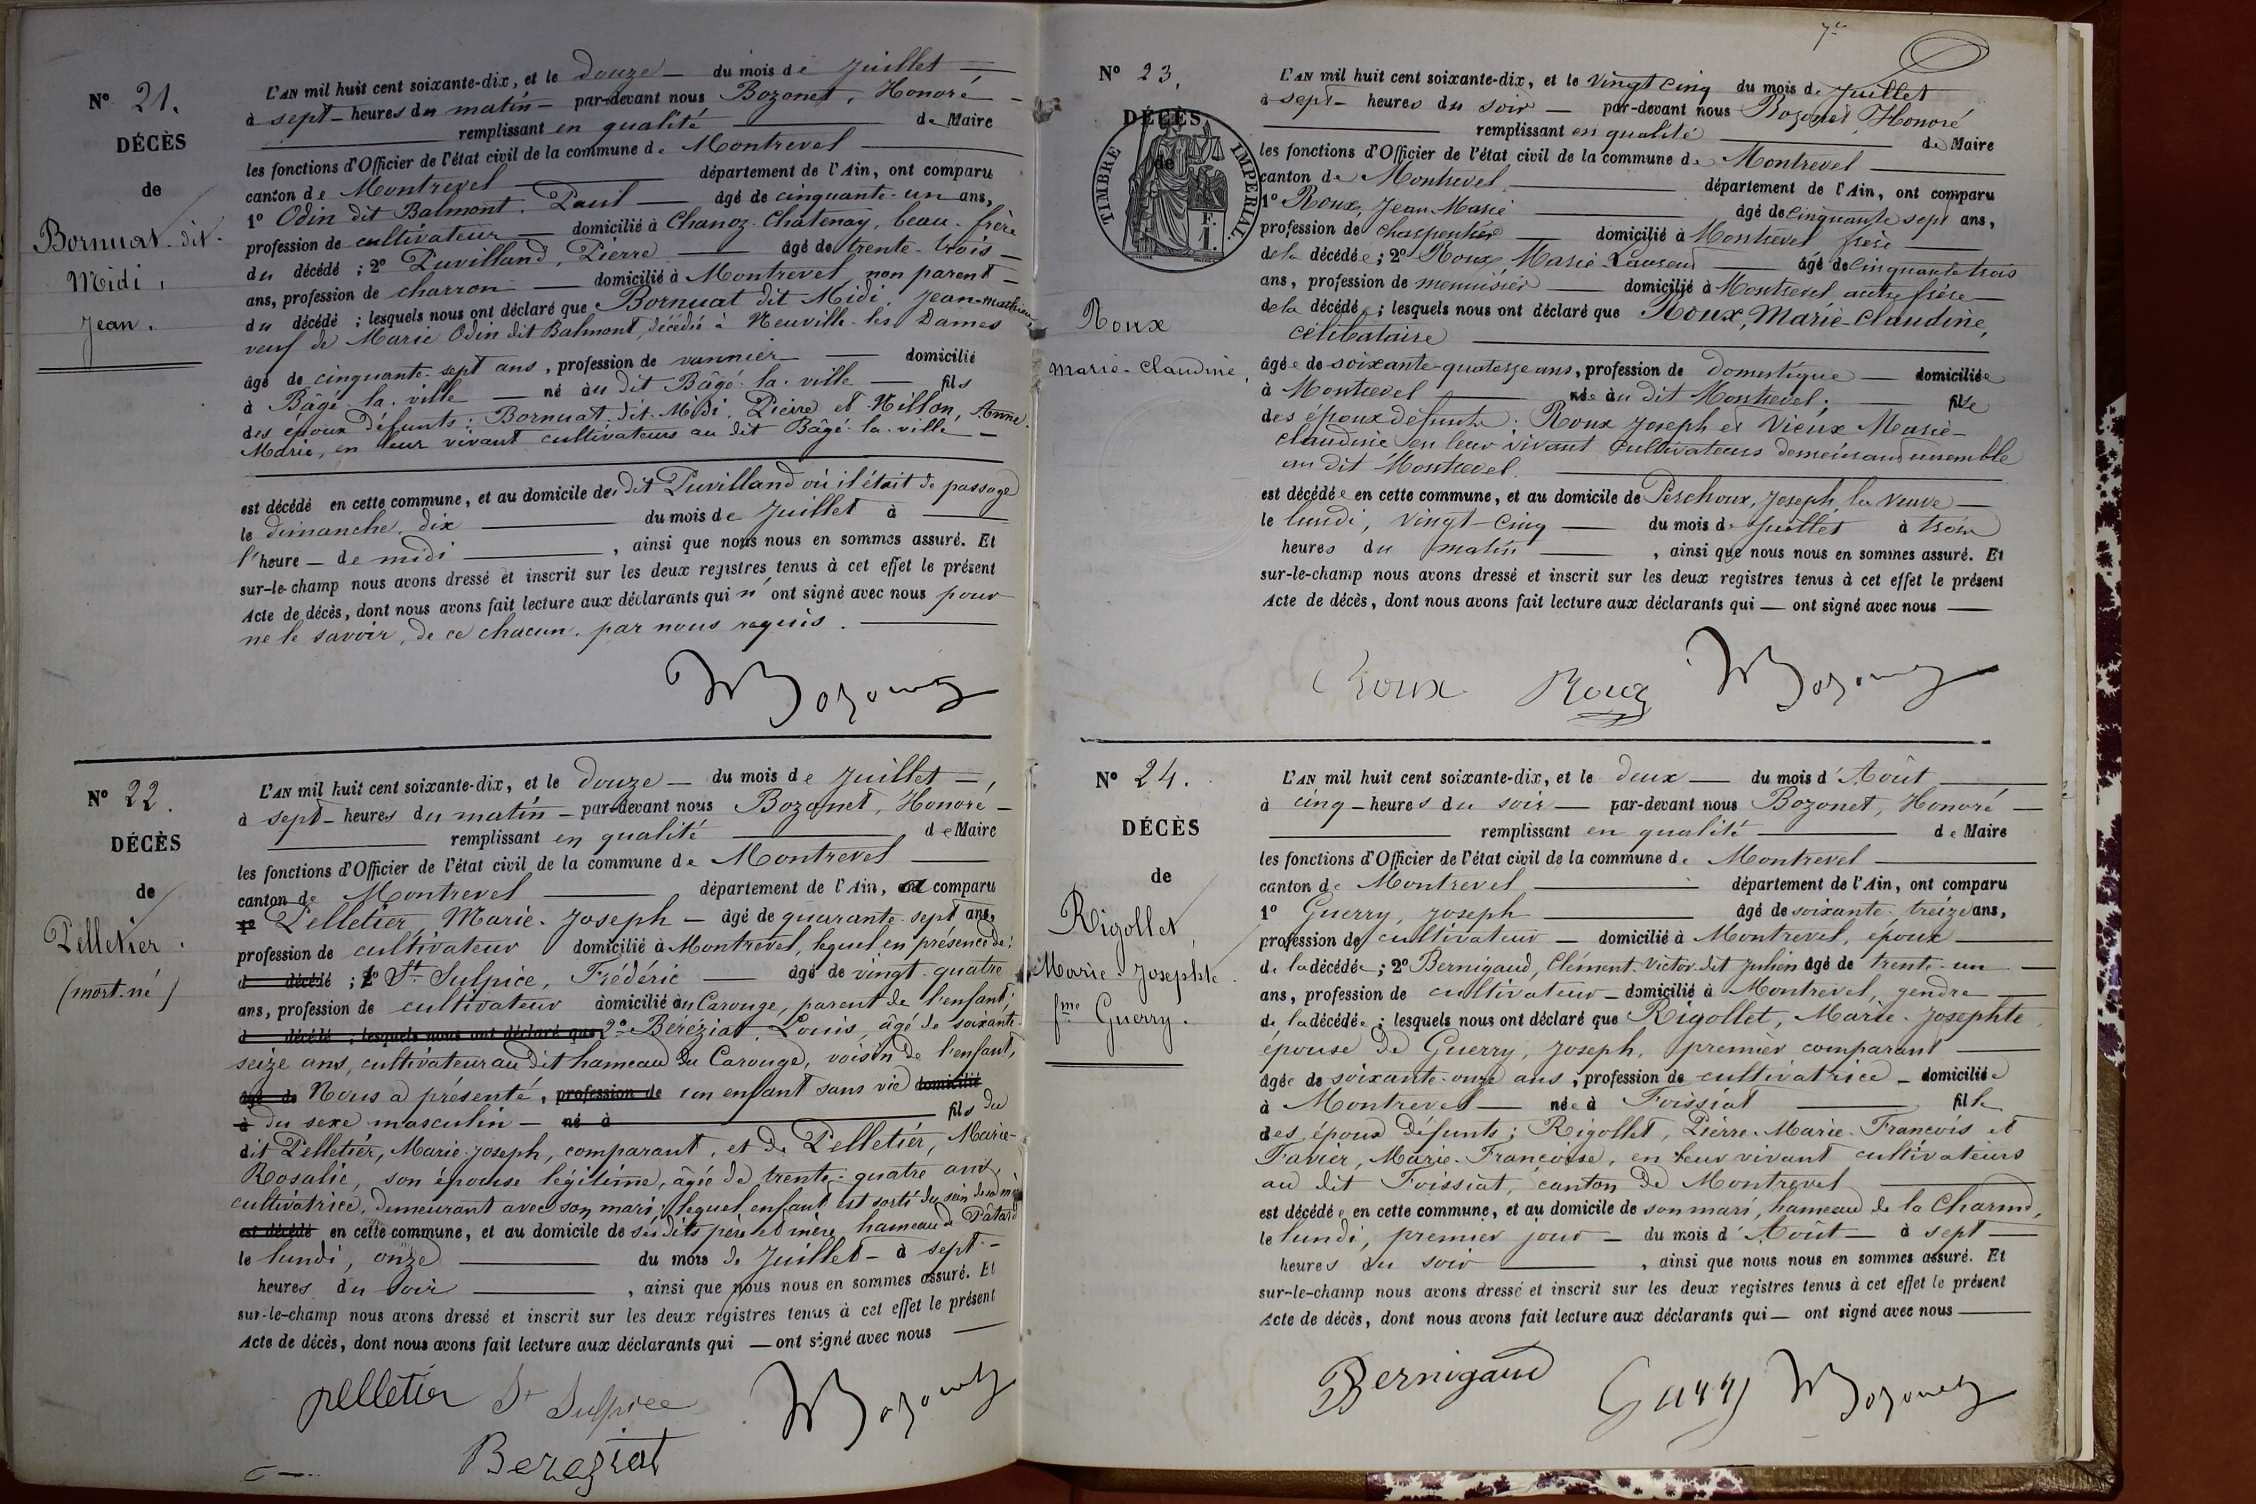 N° 21.
DÉCÈS
de
Bornuat dit
Midi,
Jean.
L'AN mil huit cent soixante-dix, et le douze du mois de Juillet
à sept heures du matin par-devant nous Bozonet, Honoré
remplissant en qualité de Maire
les fonctions d'Officier de l'état civil de la commune de Montrevel
canton de Montrevel département de l'Ain, ont comparu
1° Odin dit Balmont, Paul âgé de cinquante-un ans,
profession de cultivateur domicilié à Chanoz-Châtenay, beau-frère
du décédé ; 2° Puvilland, Pierre âgé de trente-trois
ans, profession de charron domicilié à Montrevel, non parent
du décédé ; lesquels nous ont déclaré que Bornuat dit Midi, Jean-Mathieu,
veuf de Marie Odin dit Balmont, décédée à Neuville-les-Dames
âgé de cinquante-sept ans, profession de vannier domicilié
à Bâgé-la-ville né au dit Bâgé-la-ville fils
des époux défunts : Bornuat dit Midi, Pierre et Nillon, Anne
Marie, en leur vivant cultivateurs au dit Bâgé-la-ville
est décédé en cette commune, et au domicile du dit Puvilland où il était de passage
le dimanche, dix du mois de Juillet à
l'heure de midi, ainsi que nous nous en sommes assuré. Et
sur-le-champ nous avons dressé et inscrit sur les deux registres tenus à cet effet le présent
Acte de décès, dont nous avons fait lecture aux déclarants qui n'ont signé avec nous pour
ne le savoir, de ce chacun par nous requis.
Bozonet
N° 22.
DÉCÈS
de
Pelletier.
(mort-né)
L'AN mil huit cent soixante-dix, et le douze du mois de Juillet,
à sept heures du matin par-devant nous Bozonet, Honoré
remplissant en qualité de Maire
les fonctions d'Officier de l'état civil de la commune de Montrevel
canton de Montrevel département de l'Ain, comparu
Pelletier, Marie-Joseph âgé de quarante-sept ans,
profession de cultivateur domicilié à Montrevel, lequel en présence de :
d décédé ; 1° St Sulpice, Frédéric âgé de vingt-quatre
ans, profession de cultivateur domicilié au Carouge, parent de l'enfant ;
d décédé ; lesquels nous ont déclaré que 2° Béréziat, Louis, âgé de soixante
seize ans, cultivateur au dit hameau du Carouge, voisin de l'enfant,
âgé de Nous a présenté, profession de un enfant sans vie domicilié
à du sexe masculin né à fils du
dit Pelletier, Marie-Joseph, comparant, et de Pelletier, Marie-
Rosalie, son épouse légitime, âgée de trente-quatre ans,
cultivatrice, demeurant avec son mari ; lequel enfant est sorti du sein de sa mère
est décédé en cette commune, et au domicile de ses dits père et mère, hameau de Pâtard
le lundi, onze du mois de Juillet à sept
heures du soir, ainsi que nous nous en sommes assuré. Et
sur-le-champ nous avons dressé et inscrit sur les deux registres tenus à cet effet le présent
Acte de décès, dont nous avons fait lecture aux déclarants qui ont signé avec nous
pelletier St Sulpice Bozonet
Bereziat
N° 23.
DÉCÈS
de
TIMBRE IMPERIAL
F. 1.
Roux
Marie-Claudine,
L'AN mil huit cent soixante-dix, et le vingt cinq du mois de Juillet
à sept heures du soir par-devant nous Bozonet, Honoré
remplissant en qualité de Maire
les fonctions d'Officier de l'état civil de la commune de Montrevel
canton de Montrevel département de l'Ain, ont comparu
1° Roux, Jean-Marie âgé de cinquante sept ans,
profession de charpentier domicilié à Montrevel frère
de la décédée ; 2° Roux, Marie Laurent âgé de cinquante trois
ans, profession de menuisier domicilié à Montrevel autre frère
de la décédée ; lesquels nous ont déclaré que Roux, Marie-Claudine,
célibataire
âgée de soixante-quatorze ans, profession de domestique domiciliée
à Montrevel née au dit Montrevel ; fille
des époux défunts : Roux Joseph et Vieux Marie-
claudine en leur vivant cultivateurs demeurant ensemble
au dit Montrevel.
est décédée en cette commune, et au domicile de Peschoux, Joseph, la veuve
le lundi, vingt-cinq du mois de Juillet à trois
heures du matin, ainsi que nous nous en sommes assuré. Et
sur-le-champ nous avons dressé et inscrit sur les deux registres tenus à cet effet le présent
Acte de décès, dont nous avons fait lecture aux déclarants qui ont signé avec nous
Roux Roux Bozonet
N° 24.
DÉCÈS
de
Rigollet,
Marie-Josephte
fme Guerry.
L'AN mil huit cent soixante-dix, et le deux du mois d'Août
à cinq heures du soir par-devant nous Bozonet, Honoré
remplissant en qualité de Maire
les fonctions d'Officier de l'état civil de la commune de Montrevel
canton de Montrevel département de l'Ain, ont comparu
1° Guerry, Joseph âgé de soixante-treize ans,
profession de cultivateur domicilié à Montrevel, époux
de la décédée ; 2° Bernigaud, Clément-Victor dit Julien âgé de trente-un
ans, profession de cultivateur domicilié à Montrevel, gendre
de la décédée ; lesquels nous ont déclaré que Rigollet, Marie-Josephte,
épouse de Guerry, Joseph, premier comparant
âgée de soixante-onze ans, profession de cultivatrice domiciliée
à Montrevel née à Foissiat fille
des époux défunts ; Rigollet, Pierre-Marie-François et
Favier, Marie-Françoise, en leur vivant cultivateurs
au dit Foissiat, canton de Montrevel
est décédée en cette commune, et au domicile de son mari, hameau de la Charme,
le lundi, premier jour du mois d'Août à sept
heures du soir, ainsi que nous nous en sommes assuré. Et
sur-le-champ nous avons dressé et inscrit sur les deux registres tenus à cet effet le présent
Acte de décès, dont nous avons fait lecture aux déclarants qui ont signé avec nous
Bernigaud Guerry Bozonet